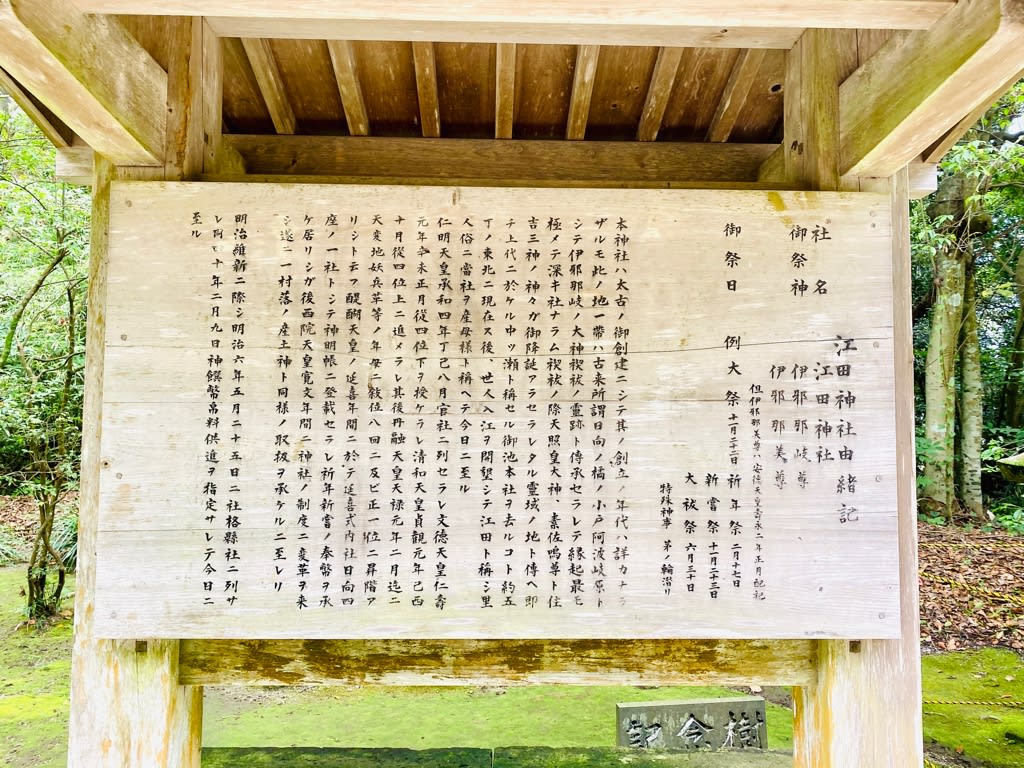 江田神社由緒記
社名 江田神社
御祭神 伊邪那岐尊
伊邪那美尊
但伊邪那美尊ハ安徳天皇壽永二年正月配祀
御祭日 例大祭 十一月二十二日 祈年祭 二月十七日
新嘗祭 十一月二十三日
大祓祭 六月三十日
特殊神事 茅ノ輪潜リ
本神社ハ太古ノ御創建ニシテ其ノ創立ノ年代ハ詳カナラ
ザルモ此ノ地一帶ハ古来所謂日向ノ橘ノ小戸阿波岐原ト
シテ伊邪那岐ノ大神禊祓ノ靈跡ト傳承セラレテ縁起最モ
極メテ深キ社ナラム禊祓ノ際天照皇大神、素佐鳴尊ト住
吉三神ノ神々ガ御降誕アラセラレタル霊域ノ地ト傳ヘ即
チ上代ニ於ケル中ツ瀬ト稱セル御池本社ヲ去ルコト約五
丁ノ東北ニ現在ス後、世人入江ヲ開墾シテ江田ト稱シ里
人俗ニ當社ヲ産母様ト稱ヘテ今日ニ至ル
仁明天皇承和四年丁己八月官社ニ列セラレ文徳天皇仁壽
元年辛未正月從四位下ヲ授ケラレ清和天皇貞觀元年己酉
十月從四位上ニ進メラレ其後再融天皇天禄元年二月迄ニ
天変地妖兵革等ノ年毎ニ敘位八回ニ及ビ正一位ニ昇階ア
リシト云フ醍醐天皇ノ延喜年間ニ於テ延喜式内社日向四
座ノ一社トシテ神明帳ニ登載セラレ祈年新嘗ノ奉幣ヲ承
ケ居リシガ後西院天皇寛文年間ニ神社ノ制度ニ変革ヲ来
シ遂ニ一村落ノ産土神ト同様ノ取扱ヲ承ケルニ至レリ
明治維新ニ際シ明治六年五月二十五日ニ社格縣社ニ列サ
レ同四十年二月九日神饌幣帛料供進ヲ指定サレテ今日ニ
至ル
樹念記